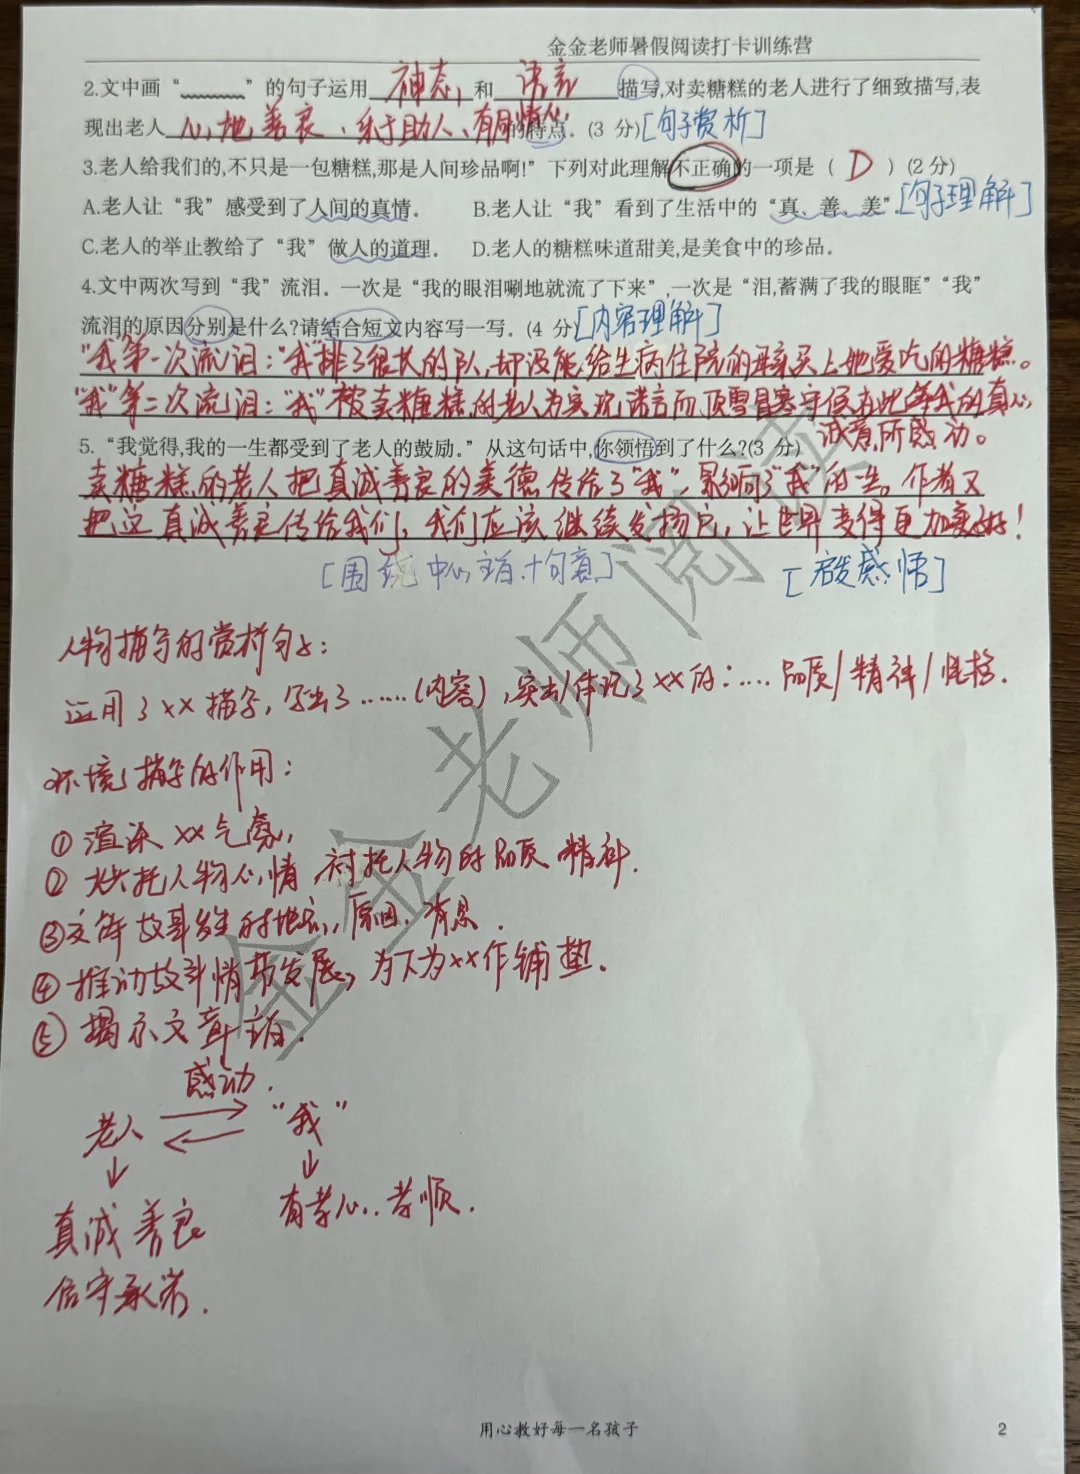 金金老师暑假阅读打卡训练营
2.文中画“﹏﹏﹏”的句子运用 神态 和 语言 描写,对卖糖糕的老人进行了细致描写,表
现出老人 心地善良、乐于助人、有同情心 的特点.(3 分)[句子赏析]
3.老人给我们的,不只是一包糖糕,那是人间珍品啊!”下列对此理解不正确的一项是( D )(2分)
A.老人让“我”感受到了人间的真情. B.老人让“我”看到了生活中的“真、善、美”.[句子理解]
C.老人的举止教给了“我”做人的道理. D.老人的糖糕味道甜美,是美食中的珍品.
4.文中两次写到“我”流泪.一次是“我的眼泪唰地就流了下来”,一次是“泪,蓄满了我的眼眶”“我”
流泪的原因分别是什么?请结合短文内容写一写.(4 分)[内容理解]
“我”第一次流泪:“我”排了很长的队,却没能给生病住院的母亲买上她爱吃的糖糕。
“我”第二次流泪:“我”被卖糖糕的老人为实现诺言而顶雪冒寒守候在此等我的真心
诚意所感动。
5.“我觉得,我的一生都受到了老人的鼓励.”从这句话中,你领悟到了什么?(3 分)
卖糖糕的老人把真诚善良的美德传给了“我”,影响了“我”的一生。作者又
把这真诚善良传给我们,我们应该继续发扬它,让世界变得更加美好!
[围绕中心主旨+句意] [启发感悟]
人物描写的赏析句子:
运用了××描写,写出了……(内容),突出/体现了××的:…品质/精神/性格.
环境描写的作用:
①渲染××气氛,
②烘托人物心情,衬托人物的品质 精神.
③交待故事发生的地点,原因.背景.
④推动故事情节发展,为下文××作铺垫.
⑤揭示文章主旨.
感动.
老人 ⇄ “我”
↓ ↓
真诚 善良 有孝心.孝顺.
信守承诺.
金金老师阅读
用心教好每一名孩子 2